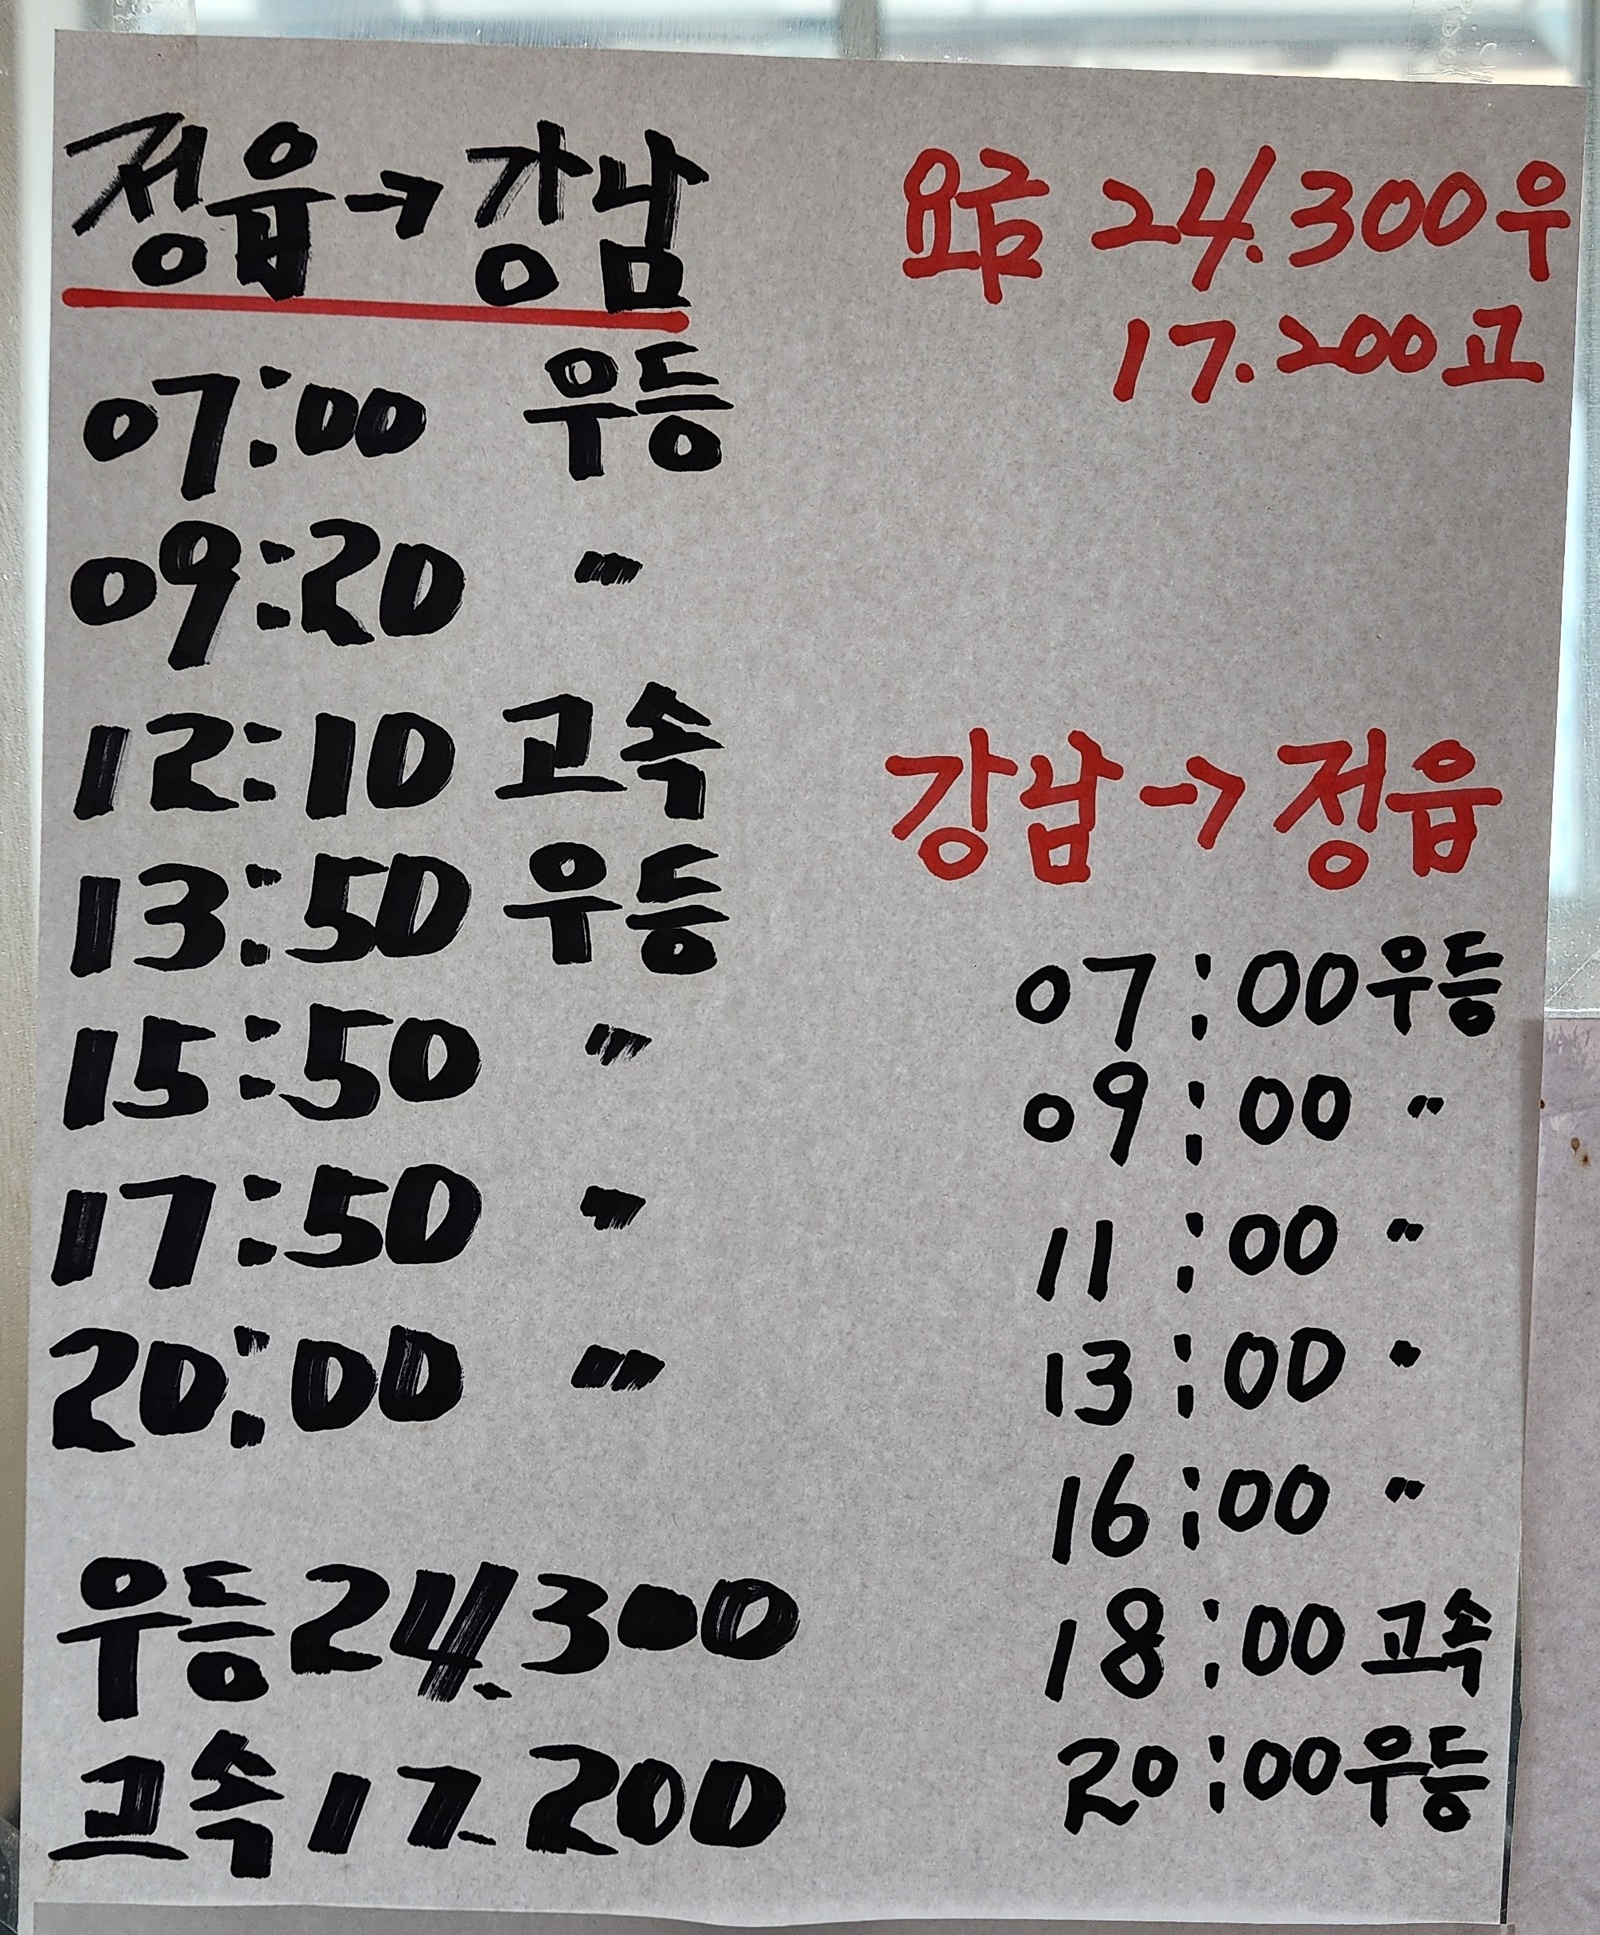 정읍→강남
07:00 우등
09:20 〃
12:10 고속
13:50 우등
15:50 〃
17:50 〃
20:00 〃
우등 24.300
고속 17.200
요금 24.300 우
17.200 고
강남→정읍
07:00 우등
09:00 〃
11:00 〃
13:00 〃
16:00 〃
18:00 고속
20:00 우등